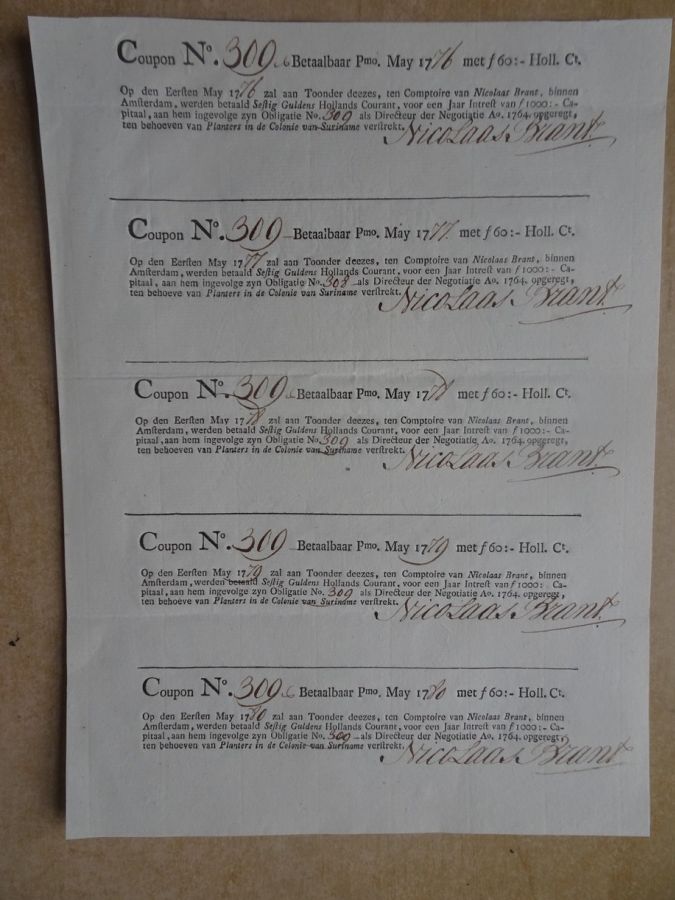 Coupon Nº. 309 Betaalbaar Pmo. May 1776 met ƒ60:- Holl. Ct.
Op den Eersten May 1776 zal aan Toonder deezes, ten Comptoire van Nicolaas Brant, binnen
Amsterdam, werden betaald Seſtig Guldens Hollands Courant, voor een Jaar Intreſt van ƒ1000:- Ca-
pitaal, aan hem ingevolge zyn Obligatie No. 309 als Directeur der Negotiatie Ao. 1764. opgeregt,
ten behoeven van Planters in de Colonie van Suriname verſtrekt.
Nicolaas Brant
Coupon Nº. 309 Betaalbaar Pmo. May 1777 met ƒ60:- Holl. Ct.
Op den Eersten May 1777 zal aan Toonder deezes, ten Comptoire van Nicolaas Brant, binnen
Amsterdam, werden betaald Seſtig Guldens Hollands Courant, voor een Jaar Intreſt van ƒ1000:- Ca-
pitaal, aan hem ingevolge zyn Obligatie No. 309 als Directeur der Negotiatie Ao. 1764. opgeregt,
ten behoeve van Planters in de Colonie van Suriname verſtrekt.
Nicolaas Brant
Coupon Nº. 309 Betaalbaar Pmo. May 1778 met ƒ60:- Holl. Ct.
Op den Eersten May 1778 zal aan Toonder deezes, ten Comptoire van Nicolaas Brant, binnen
Amsterdam, werden betaald Seſtig Guldens Hollands Courant, voor een Jaar Intreſt van ƒ1000:- Ca-
pitaal, aan hem ingevolge zyn Obligatie No. 309 als Directeur der Negotiatie Ao. 1764. opgeregt,
ten behoeven van Planters in de Colonie van Suriname verſtrekt.
Nicolaas Brant
Coupon Nº. 309 Betaalbaar Pmo. May 1779 met ƒ60:- Holl. Ct.
Op den Eersten May 1779 zal aan Toonder deezes, ten Comptoire van Nicolaas Brant, binnen
Amsterdam, werden betaald Seſtig Guldens Hollands Courant, voor een Jaar Intreſt van ƒ1000:- Ca-
pitaal, aan hem ingevolge zyn Obligatie No. 309 als Directeur der Negotiatie Ao. 1764. opgeregt,
ten behoeve van Planters in de Colonie van Suriname verſtrekt.
Nicolaas Brant
Coupon Nº. 309 Betaalbaar Pmo. May 1780 met ƒ60:- Holl. Ct.
Op den Eersten May 1780 zal aan Toonder deezes, ten Comptoire van Nicolaas Brant, binnen
Amsterdam, werden betaald Seſtig Guldens Hollands Courant, voor een Jaar Intreſt van ƒ1000:- Ca-
pitaal, aan hem ingevolge zyn Obligatie No. 309 als Directeur der Negotiatie Ao. 1764. opgeregt,
ten behoeven van Planters in de Colonie van Suriname verſtrekt.
Nicolaas Brant